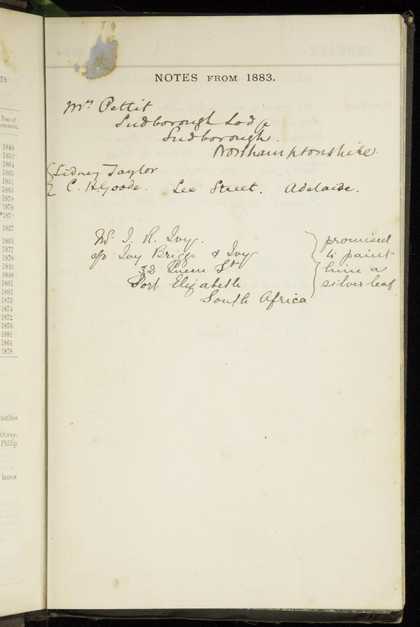 NOTES FROM 1883.
Mrs Pettit
Sudborough Lodge
Sudborough.
Northamptonshire
Sidney Taylor
C. H. Goode. Lee Street. Adelaide.
Mr J. R. Ivy.
c/o Ivy Briggs & Ivy
32 Queen St
Port Elizabeth
South Africa
promised
to paint
him a
silver leaf